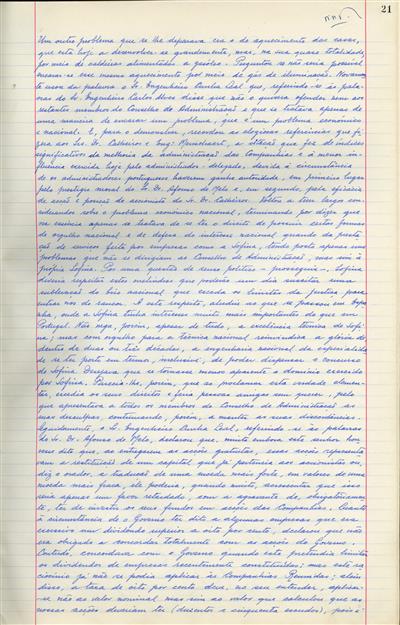 21
Um outro problema que se lhe deparava era o do aquecimento das casas,
que está hoje a desenvolver-se grandemente, mas, na sua quase totalidade
por meio de caldeiras alimentadas a gasóleo. Perguntou se não seria possível
ensaiar-se esse mesmo aquecimento por meio de gás de iluminação. Novamen-
te usou da palavra o Sr. Engenheiro Cunha Leal que, referindo-se às pala-
vras do Sr. Engenheiro Carlos Alves disse que não o quisera ofender nem aos
restantes membros do Conselho de Administração e que se tratava apenas de
uma maneira de encarar um problema, que é um problema económico
e nacional. E, para o demonstrar, recordou as elogiosas referências que fi-
zera aos Srs. Dr. Casheiro e Eng. a citação que fez de índices
significativos da melhoria da administração das Companhias e a menor in-
fluência exercida hoje pelo administrador-delegado, devida à circunstância
de os administradores portugueses haverem ganho autoridade, em primeiro lugar
pelo prestígio moral do Sr. Dr. Afonso de Melo e, em segundo, pela eficácia
de acção e posição de economista do Sr. Dr. Casheiro. Voltou a tecer largas con-
siderações sobre o problema económico nacional, terminando por dizer que
na essência apenas se tratava de se ter o direito de prevenir certas formas
de espírito nacional e de defesa do interesse nacional quando da presta-
ção de serviços feita por empresas como a Sofina, tendo posto apenas uns
problemas que não se dirigiam ao Conselho de Administração, mas sim à
própria Sofina. Por uma questão de senso político - prosseguiu -, Sofina
deveria respeitar estes melindres que poderiam um dia suscitar uma
sublevação do brio nacional, que exceda os limites da justiça para
entrar nos do rancor. A este respeito, aludiu ao que se passou em Espa-
nha, onde a Sofina tinha interesses muito mais importantes do que em
Portugal. Não nega, porém, apesar de tudo, a excelência técnica de Sofi-
na; mas com orgulho para a técnica nacional reivindica a glória de,
dentro de duas ou três décadas, a engenharia nacional da especialidade
de se ter posto em termos, inclusivé, de poder dispensar o concurso
de Sofina. Desejava que se tornasse menos aparente o domínio exercido
por Sofina. Parecia-lhe, porém, que ao proclamar esta verdade elemen-
tar, excedia os seus direitos e feria pessoas amigas sem querer, pelo
que apresentava a todos os membros do Conselho de Administração as
suas desculpas, continuando, porém, a manter as suas discordâncias.
Seguidamente, o Sr. Engenheiro Cunha Leal, referindo-se às palavras
do Sr. Dr. Afonso de Melo, declarou que, muito embora este senhor hou-
vesse dito que, ao entregarem as acções gratuitas, essas acções representa-
vam a restituição de um capital que já pertencia aos accionistas ou,
diz o orador, a tradução de uma moeda mais forte, em valores de uma
moeda mais fraca, ele poderia, quando muito, acrescentar que isso
seria apenas um favor retardado, com a agravante de, obrigatoriamen-
te, ter de investir os seus fundos em acções das Companhias. Quanto
à circunstância de o Governo ter dito a algumas empresas que era
excessivo um dividendo superior a oito por cento, declarou que não
era obrigado a concordar totalmente com as acções do Governo.
Contudo, concordava com o Governo quando este pretendia limitar
os dividendos de empresas recentemente constituídas; mas este ra-
ciocínio já não se podia aplicar às Companhias Reunidas; além
disso, a taxa de oito por cento devia, no seu entender, aplicar-
se não ao valor nominal mas sim ao valor que calculou que as
nossas acções deveriam ter (duzentos e cinquenta escudos), pois é